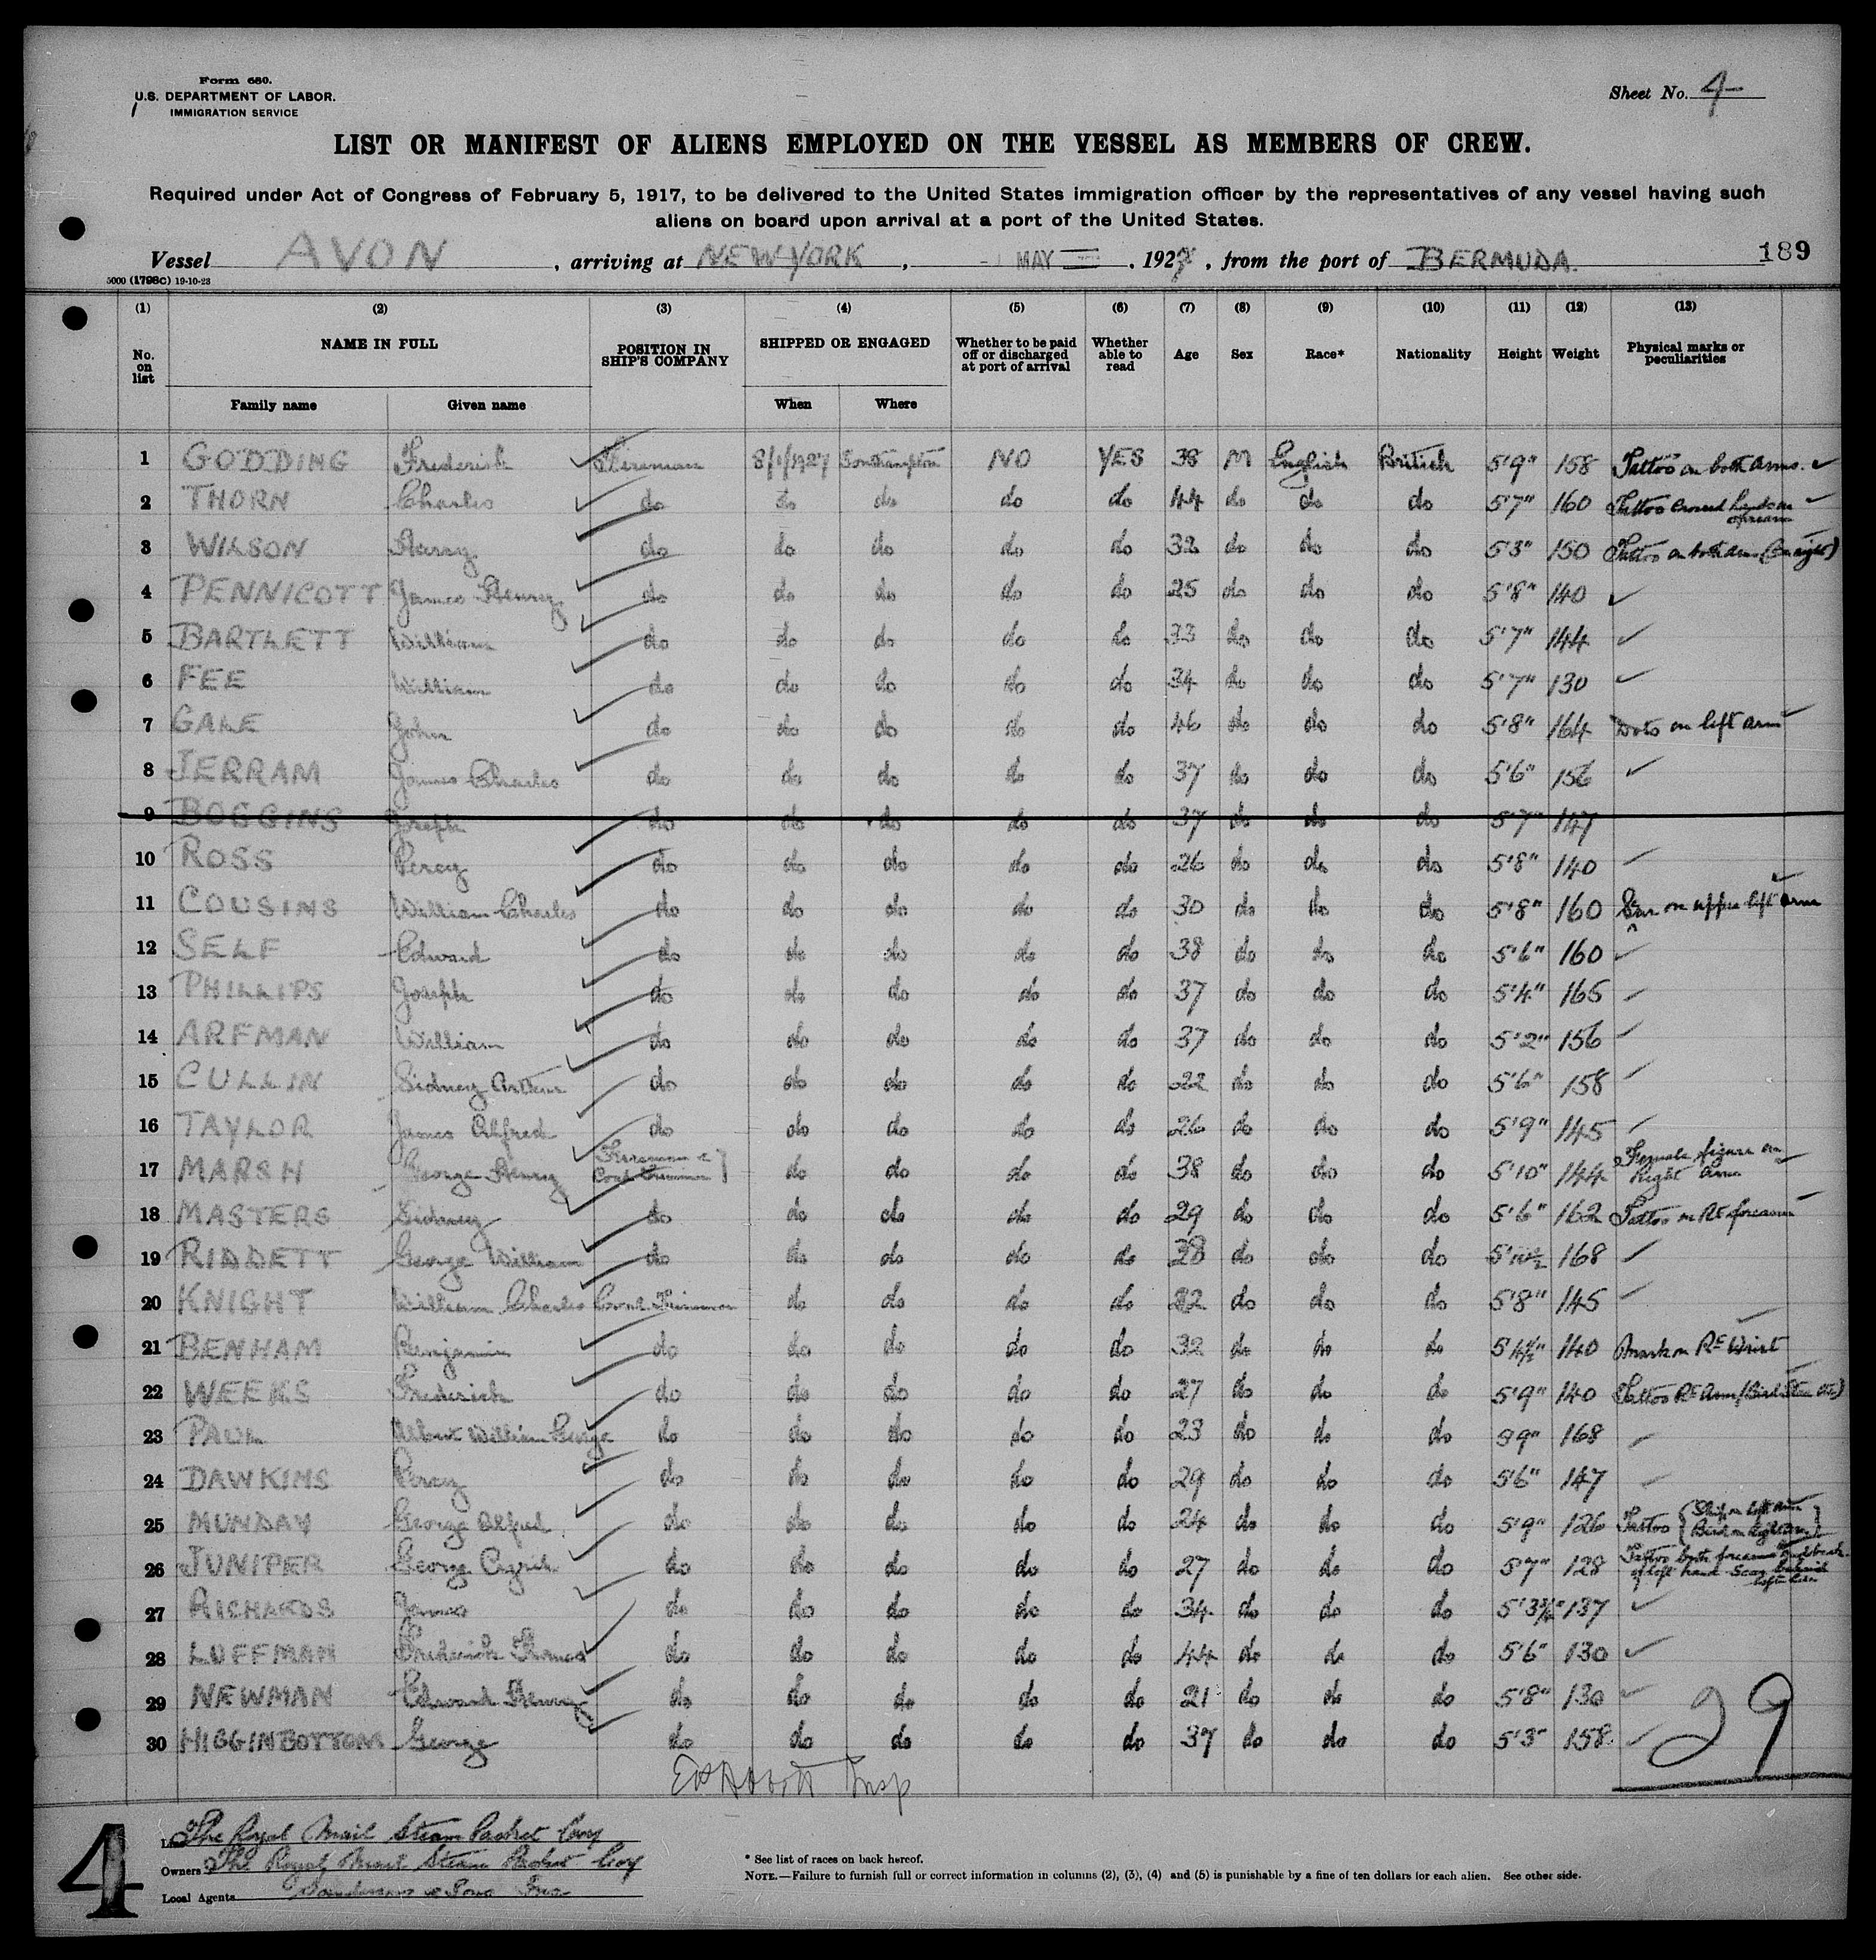 Form 680.
U.S. DEPARTMENT OF LABOR.
IMMIGRATION SERVICE
Sheet No. 4
LIST OR MANIFEST OF ALIENS EMPLOYED ON THE VESSEL AS MEMBERS OF CREW.
Required under Act of Congress of February 5, 1917, to be delivered to the United States immigration officer by the representatives of any vessel having such
aliens on board upon arrival at a port of the United States.
Vessel AVON, arriving at NEW YORK, MAY, 192, from the port of BERMUDA. 189
5000 (1798C) 19-10-23
(1) (2) (3) (4) (5) (6) (7) (8) (9) (10) (11) (12) (13)
No. on list NAME IN FULL POSITION IN SHIP'S COMPANY SHIPPED OR ENGAGED Whether to be paid off or discharged at port of arrival Whether able to read Age Sex Race* Nationality Height Weight Physical marks or peculiarities
Family name Given name When Where
1 GODDING Frederick Fireman 8/1/1927 Southampton NO YES 38 M English British 5'9" 158 Tattoo on both arms.
2 THORN Charles do do do do do 44 do do do 5'7" 160 Tattoo Crossed hands on forearm
3 WILSON Harry do do do do do 32 do do do 5'3" 150 Tattoo on both arms
4 PENNICOTT James Henry do do do do do 25 do do do 5'8" 140
5 BARTLETT William do do do do do 33 do do do 5'7" 144
6 FEE William do do do do do 34 do do do 5'7" 130
7 GALE John do do do do do 46 do do do 5'8" 164 Dots on left arm
8 JERRAM James Charles do do do do do 37 do do do 5'6" 156
9 BOGGINS Joseph do do do do do 37 do do do 5'7" 147
10 ROSS Percy do do do do do 26 do do do 5'8" 140
11 COUSINS William Charles do do do do do 30 do do do 5'8" 160 Scar on upper left arm
12 SELF Edward do do do do do 38 do do do 5'6" 160
13 PHILLIPS Joseph do do do do do 37 do do do 5'4" 165
14 ARFMAN William do do do do do 37 do do do 5'2" 156
15 CULLIN Sidney Arthur do do do do do 22 do do do 5'6" 158
16 TAYLOR James Alfred do do do do do 26 do do do 5'9" 145
17 MARSH George Henry Fireman & Coal Trimmer do do do do 38 do do do 5'10" 144 Female figure on Right Arm
18 MASTERS Sidney do do do do do 29 do do do 5'6" 162 Tattoo on Rt forearm
19 RIDDETT George William do do do do do 38 do do do 168
20 KNIGHT William Charles Coal Trimmer do do do do 22 do do do 5'8" 145
21 BENHAM Benjamin do do do do do 32 do do do 5'4½" 140 Mark on Rt Wrist
22 WEEKS Frederick do do do do do 27 do do do 5'9" 140 Tattoo Rt Arm
23 PAUL Albert William George do do do do do 23 do do do 5'9" 168
24 DAWKINS Percy do do do do do 29 do do do 5'6" 147
25 MUNDAY George Alfred do do do do do 24 do do do 5'9" 126 Tattoo { Ship on left arm Bird on right arm }
26 JUNIPER George Cyril do do do do do 27 do do do 5'7" 128 Tattoo both forearms and back of left hand Scar behind left
27 RICHARDS James do do do do do 34 do do do 5'3¾" 137
28 LUFFMAN Frederick Thomas do do do do do 44 do do do 5'6" 130
29 NEWMAN Edward Henry do do do do do 21 do do do 5'8" 130
30 HIGGINBOTTOM George do do do do do 37 do do do 5'3" 158
29
Insp
4
Line The Royal Mail Steam Packet Coy
Owners The Royal Mail Steam Packet Coy
Local Agents Sanderson & Sons Inc
* See list of races on back hereof.
NOTE.—Failure to furnish full or correct information in columns (2), (3), (4) and (5) is punishable by a fine of ten dollars for each alien. See other side.